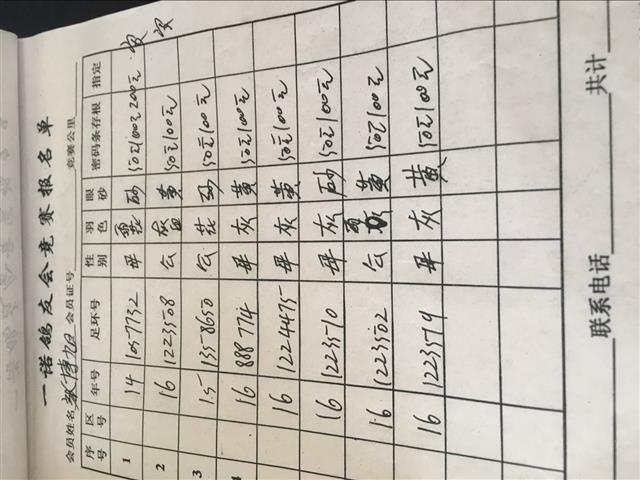 一诺鸽友会竞赛报名单
会员姓名 会员证号 竞赛公里
序号 区号 年号 足环号 性别 羽色 眼砂 密码条存根 指定
1 14 1057732 母 砂 50元100元200元
2 16 1223508 公 灰 黄 50元100元
3 15 1358650 公 花 砂 50元100元
4 16 888774 母 灰 黄 50元100元
16 1224475 母 灰 黄 50元100元
16 1223510 母 灰 砂 50元100元
16 1223502 公 灰 黄 50元100元
16 1223579 母 灰 黄 50元100元
联系电话 共计